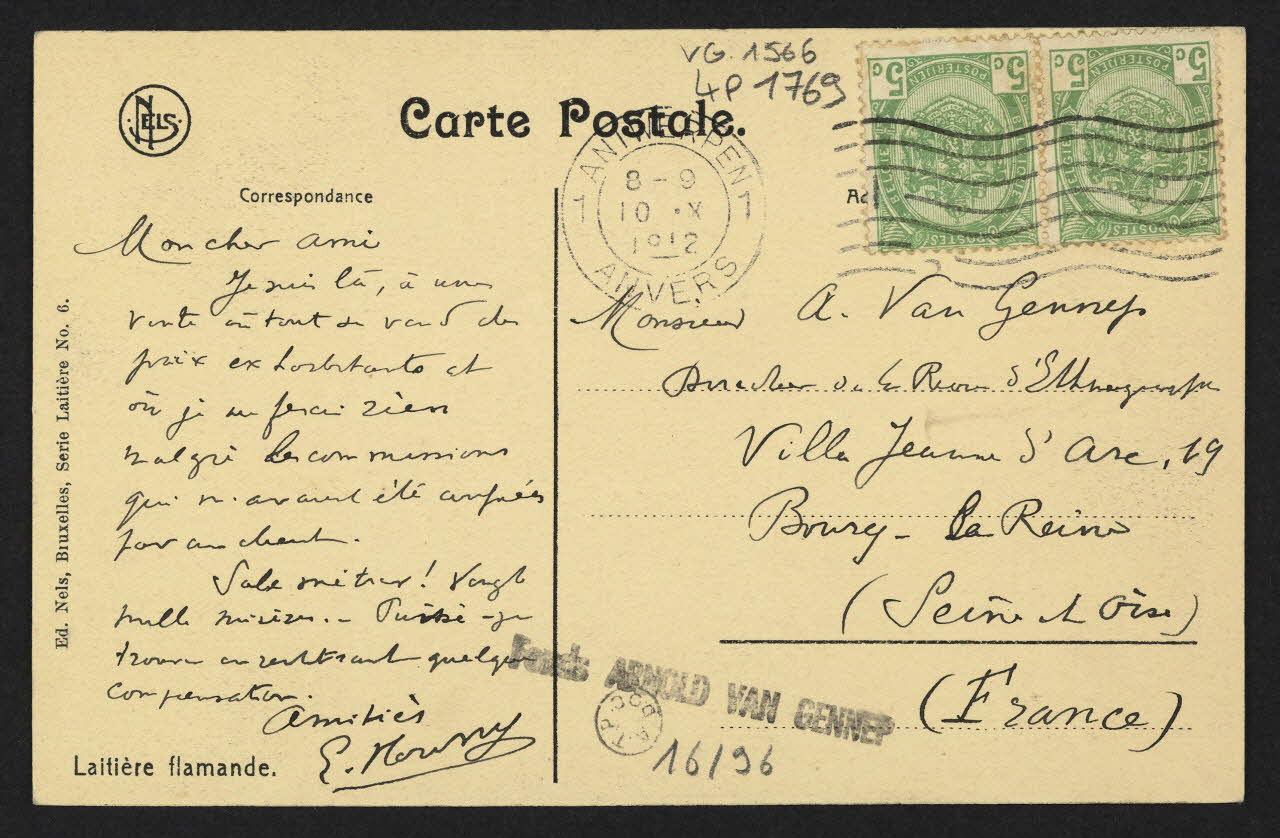 VG. 1566
4P 1769
NELS
Carte Postale.
5c 5c 5c 5c
POSTERIJEN POSTERIJEN
BELGIË BELGIQUE
POSTES POSTES
1 ANTWERPEN 1
8-9
10 X
1912
ANVERS
Correspondance
Mon cher ami
Je suis là, à une
vente où tout se vend des
prix exhorbitants et
où je ne ferai rien
malgré les commissions
qui m'avaient été confiées
par un client.
Sale métier! Vingt
mille misères. - Puissé-je
trouver en rentrant quelque
compensation.
Amitiés
Monsieur A. Van Gennep
Directeur de la Revue d'Ethnographie
Villa Jeanne d'Arc, 19
Bourg-la Reine
(Seine et Oise)
(France)
Fonds ARNOLD VAN GENNEP
A.T.P. DOC
16/96
Laitière flamande.
Ed. Nels, Bruxelles, Serie Laitière No. 6.